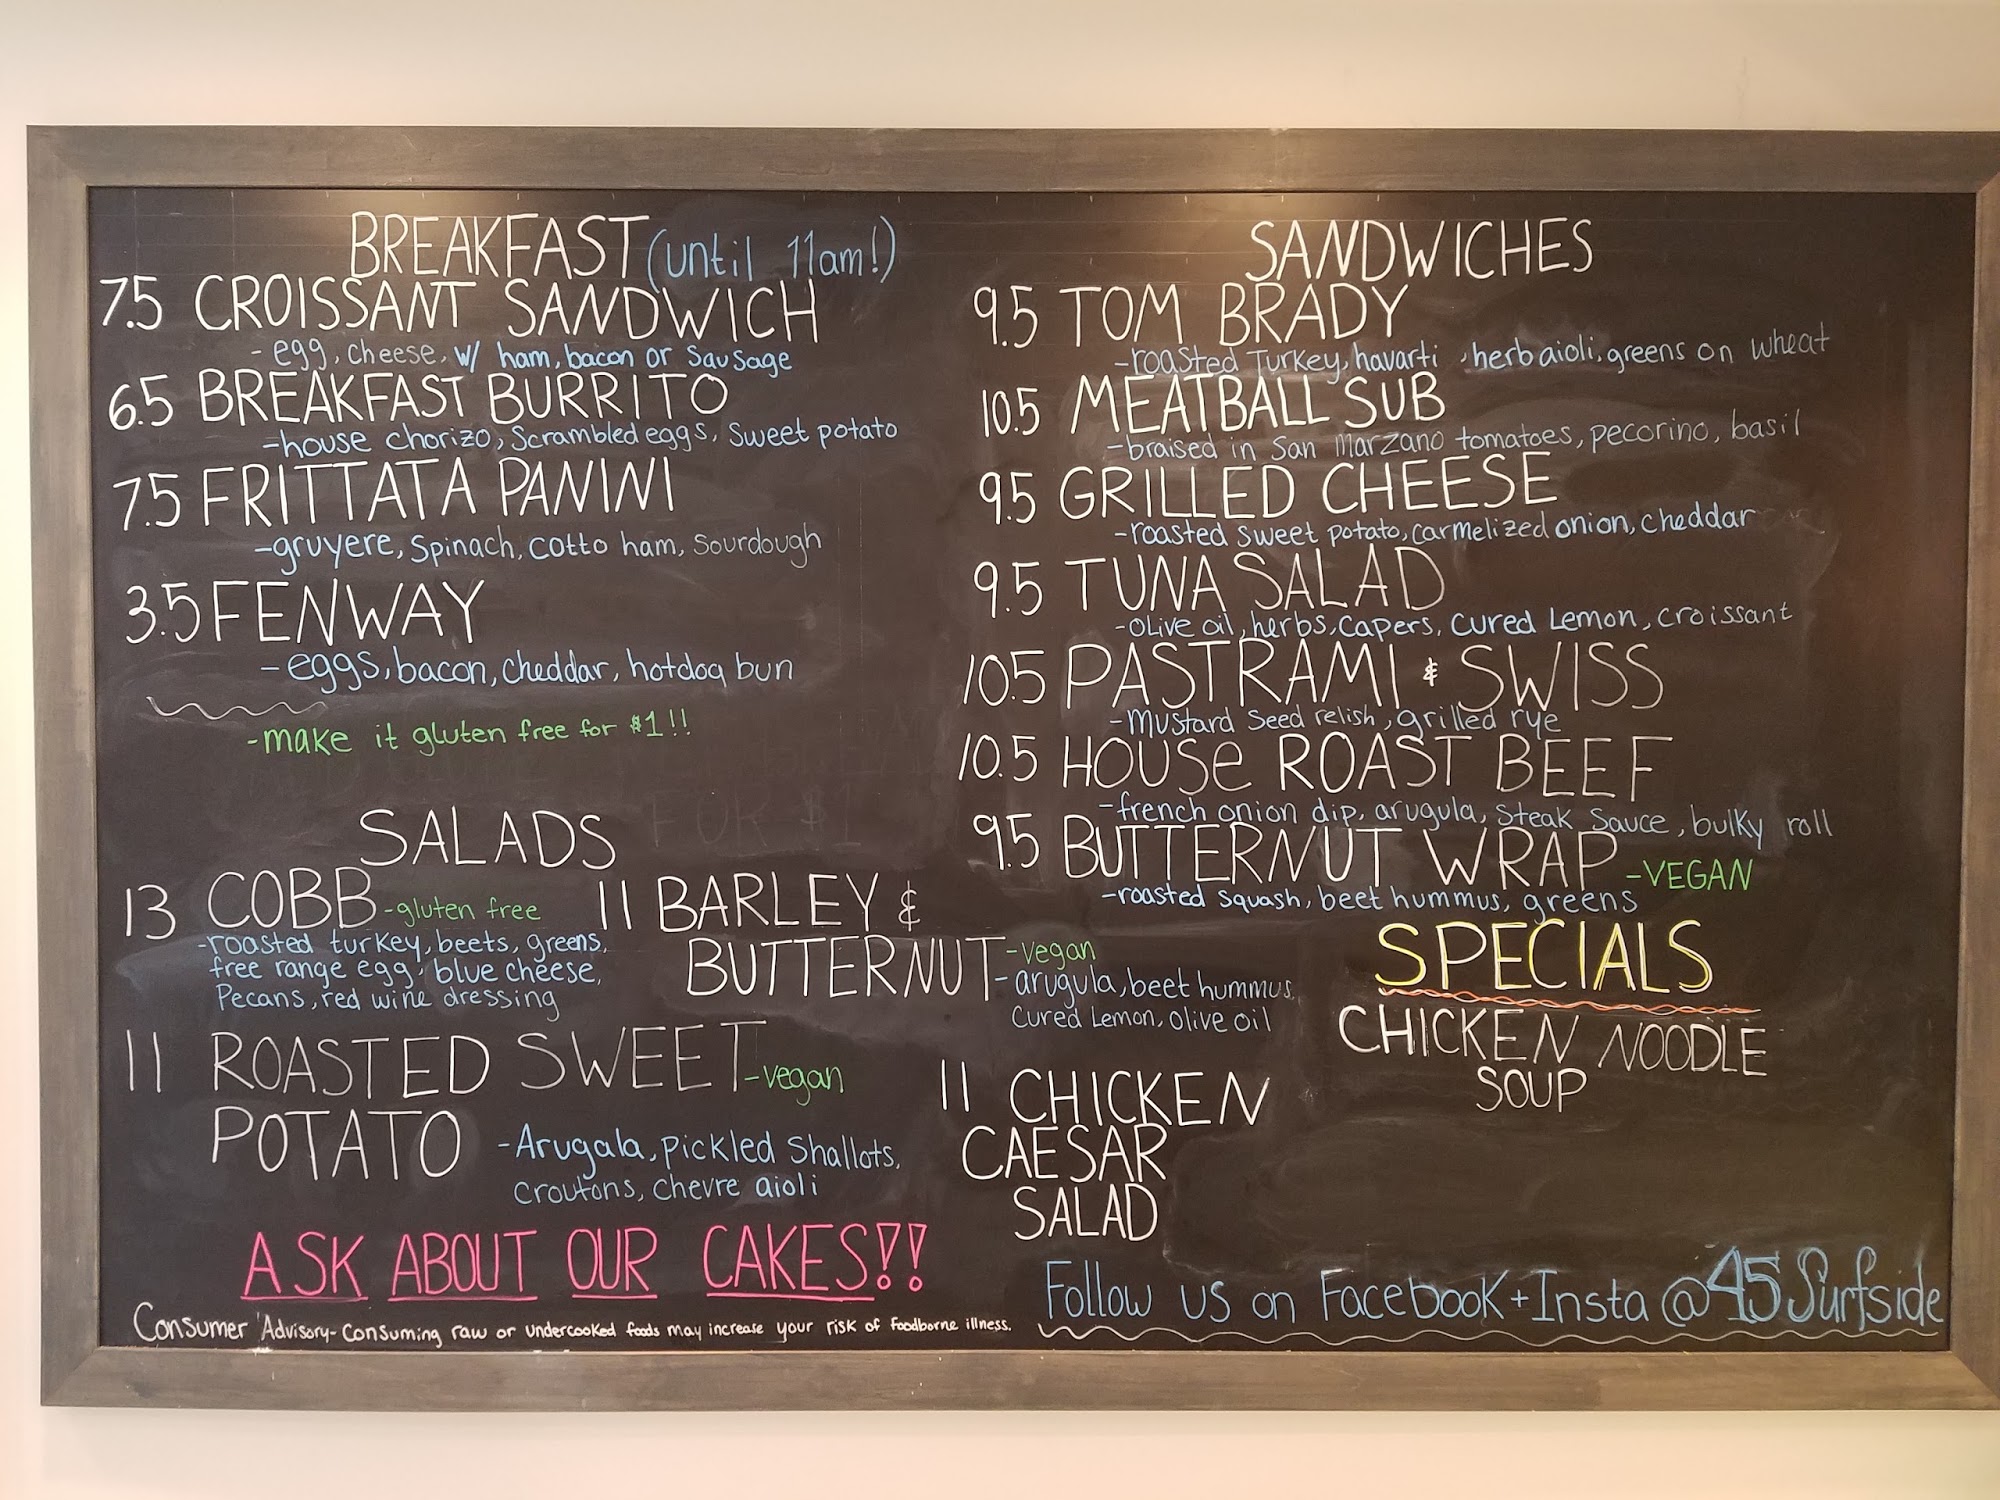 BREAKFAST (until 11am!)
7.5 CROISSANT SANDWICH
- egg, cheese, w/ ham, bacon or sausage
6.5 BREAKFAST BURRITO
-house chorizo, scrambled eggs, sweet potato
7.5 FRITTATA PANINI
-gruyere, spinach, cotto ham, sourdough
3.5 FENWAY
-eggs, bacon, cheddar, hotdog bun
-make it gluten free for $1!!
SALADS
13 COBB -gluten free
-roasted turkey, beets, greens,
free range egg, blue cheese,
Pecans, red wine dressing
11 BARLEY &
BUTTERNUT -vegan
-arugula, beet hummus,
cured Lemon, olive oil
11 ROASTED SWEET -vegan
POTATO -Arugala, pickled shallots,
croutons, chevre aioli
11 CHICKEN
CAESAR
SALAD
SANDWICHES
9.5 TOM BRADY
-roasted Turkey, havarti, herb aioli, greens on wheat
10.5 MEATBALL SUB
-braised in San Marzano tomatoes, pecorino, basil
9.5 GRILLED CHEESE
-roasted sweet potato, carmelized onion, cheddar
9.5 TUNA SALAD
-olive oil, herbs, capers, cured Lemon, croissant
10.5 PASTRAMI & SWISS
-mustard seed relish, grilled rye
10.5 HOUSe ROAST BEEF
-french onion dip, arugula, steak sauce, bulky roll
9.5 BUTTERNUT WRAP -VEGAN
-roasted squash, beet hummus, greens
SPECIALS
CHICKEN NOODLE
SOUP
ASK ABOUT OUR CAKES!!
Consumer Advisory- Consuming raw or undercooked foods may increase your risk of foodborne illness.
Follow us on Facebook + Insta @45Surfside